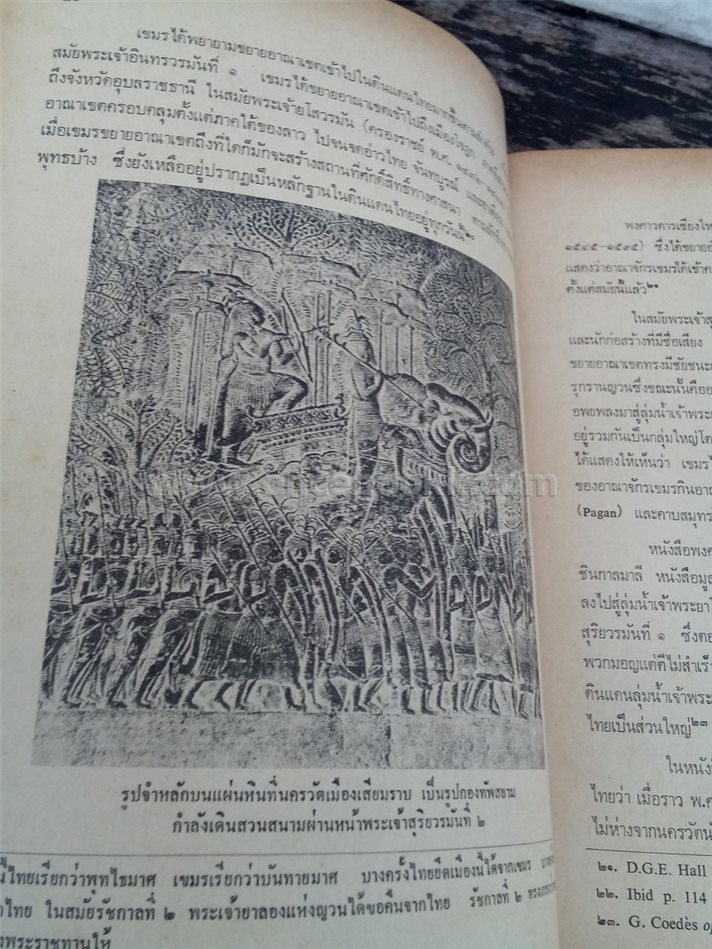 เขมรได้พยายามขยายอาณาเขตเข้าไปในดินแดนไทยมากขึ้น
สมัยพระเจ้าอินทรวรมันที่ ๑ เขมรได้ขยายอาณาเขตเข้าไปถึงเมือง
ถึงจังหวัดอุบลราชธานี ในสมัยพระเจ้ายโสวรมัน (ครองราชย์ พ.ศ.
อาณาเขตครอบคลุมตั้งแต่ภาคใต้ของลาว ไปจนจดอ่าวไทย จันทบูรณ์
เมื่อเขมรขยายอาณาเขตถึงที่ใดก็มักจะสร้างสถานที่ศักดิ์สิทธิ์ทางศาสนา
พุทธบ้าง ซึ่งยังเหลืออยู่ปรากฏเป็นหลักฐานในดินแดนไทยอยู่ทุกวันนี้
รูปจำหลักบนแผ่นหินที่นครวัตเมืองเสียมราบ เป็นรูปกองทัพสยาม
กำลังเดินสวนสนามผ่านหน้าพระเจ้าสุริยวรมันที่ ๒
นี้ไทยเรียกว่าพุทไธมาศ เขมรเรียกว่าบันทายมาศ บางครั้งไทยยึดเมืองนี้ได้จากเขมร
ไทย ในสมัยรัชกาลที่ ๒ พระเจ้ายาลองแห่งญวนได้ขอคืนจากไทย รัชกาลที่ ๒
พระราชทานให้
พงศาวดารเชียงให
๑๕๔๕-๑๕๙๕) ซึ่งได้ขยาย
แสดงว่าอาณาจักรเขมรได้เข้าค
ตั้งแต่สมัยนี้แล้ว๒๑
ในสมัยพระเจ้าสุ
และนักก่อสร้างที่มีชื่อเสียง
ขยายอาณาเขตทรงมีชัยชนะ
รุกรานญวนซึ่งขณะนั้นคือ
อพยพลงมาสู่ลุ่มน้ำเจ้าพระ
อยู่รวมกันเป็นกลุ่มใหญ่โด
ได้แสดงให้เห็นว่า เขมรไ
ของอาณาจักรเขมรกินอา
(Pagan) และคาบสมุทร
หนังสือพงศ
ชินกาลมาลี หนังสือมูล
ลงไปสู่ลุ่มน้ำเจ้าพระยาโ
สุริยวรมันที่ ๑ ซึ่งต
พวกมอญแต่ตีไม่สำเร็
ดินแดนลุ่มน้ำเจ้าพระ
ไทยเป็นส่วนใหญ่๒๓
ในหนังสื
ไทยว่า เมื่อราว พ.ศ
ไม่ห่างจากนครวัตนั
๒๑. D.G.E. Hall
๒๒. Ibid p. 114
๒๓. G. Coedès op